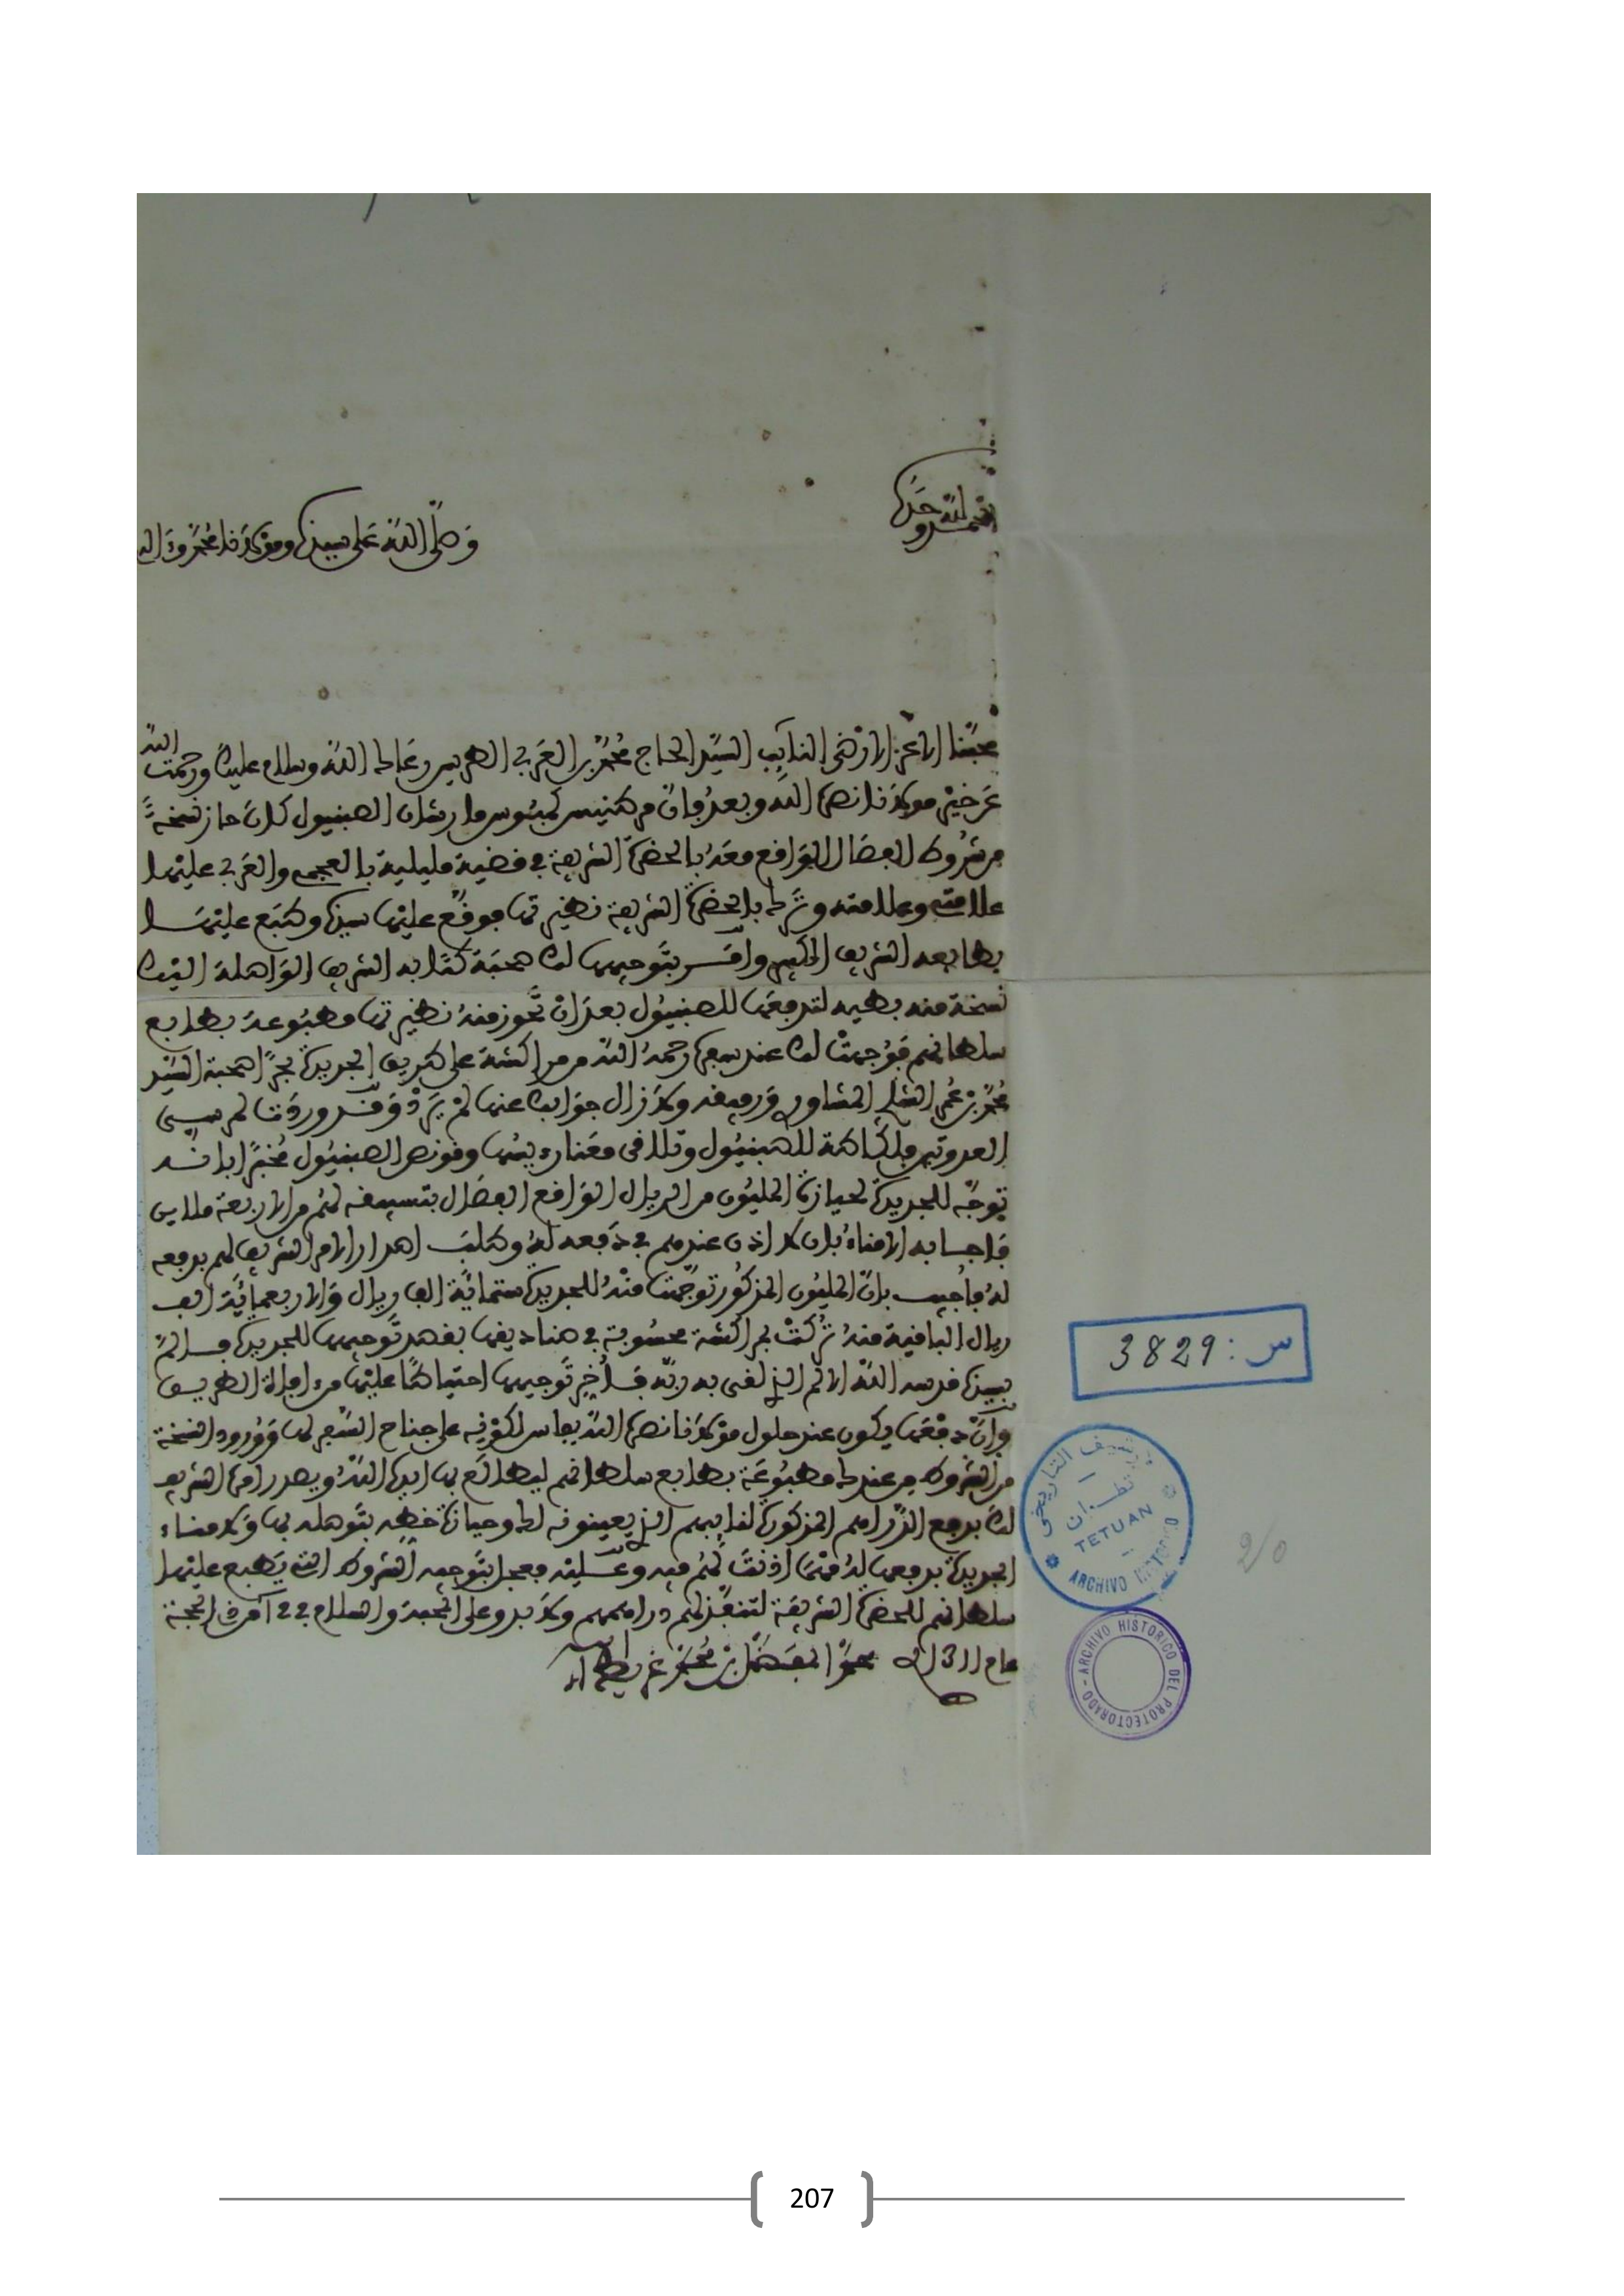 الحمد لله وحده
وصلى الله على سيدنا ومولانا محمد وءاله
محبنا الاعز الارضى النائب السيد الحاج محمد بن العربي الطريس رعاك الله وسلام عليك ورحمت الله
عن خير مولانا نصره الله وبعد فان مركنيس كمبوس مارتنان الصبنيول كان حاز نسخة
من شروط الفصال الواقع معه بالحضرة الشريفة في قضية مليلية بالعجمي والعربي عليها
علامتي وعلامته وترك بالحضرة الشريفة نظيرتها فوقع عليها سيدنا وطبع عليها
بطابعه الشريف الكبير وامر بتوجيهها لك صحبة كتابه الشريف الواصلة اليك
نسخة منه بطيه لتدفعها للصبنيول بعد ان تحوز منه نظيرتها مطبوعة بطابع
سلطانهم فوجهت لك عند سفره رحمه الله من مراكشة على طريق الجديدة بحرا صحبة السيد
محمد بن عمر المشاوري ورفيقه ولا زال جوابك عنها لم يرد وقد وردت لمرسى
العدوتين فركاطة للصبنيول وتلاقى معنا رئيسها وقونص الصبنيول مخبرا بانه
توجه للجديدة لحيازة المليون من الريال الواقع الفصال بتسبيقه لهم من الاربعة ملايين
فاجابه الامناء بان لا اذن عندهم في دفعه له وطلب اصدار الامر الشريف لهم بدفعه
له فاجيب بان المليون المذكور توجهت منه للجديدة ستمائة الف ريال والاربعمائة الف
ريال الباقية منه تركت بمراكشة محسوبة في صناديقها بقصد توجيهها للجديدة فالم
بسيدنا قدسه الله الالم الذي لقي به ربه فاخر توجيهها احتياطا عليها من افات الطريق
وان دفعها يكون عند حلول مولانا نصره الله بفاس لكونه على جناح السفر لها وورود النسخة
من الشروط من عندك مطبوعة بطابع سلطانهم ليطالع بها ايده الله ويصدر امره الشريف
لك بدفع الدراهم المذكورة لنائبهم الذي يعينونه لك وحيازة خطه بتوصله بها ولامناء
الجديدة بدفعها له متى اذنت لهم فيه وعليه فعجل بتوجيه الشروط التي يطبع عليها
سلطانهم للحضرة الشريفة لتنفذ لهم دراهمهم ولا بد وعلى المحبة والسلام في 2 من ذي الحجة
عام 1311 محمد المفضل بن محمد غريط لطف الله به
س : 3829
الأرشيف التاريخي
تطوان
TETUAN
ARCHIVO HISTORICO
ARCHIVO HISTORICO DEL PROTECTORADO
207